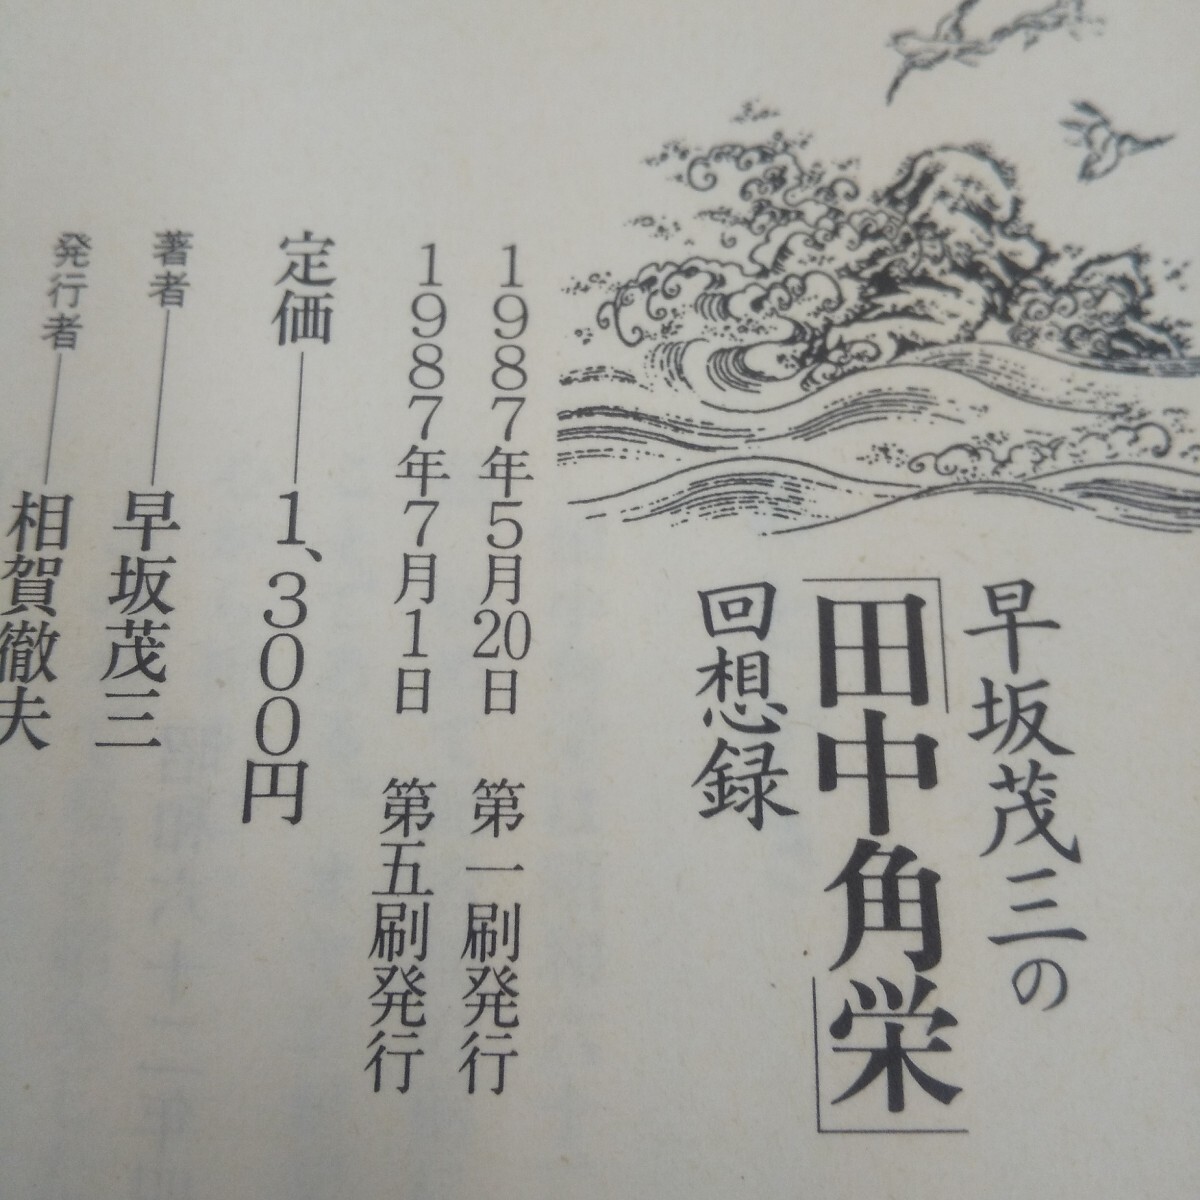 早坂茂三の
「田中角栄」
回想録
1987年5月20日　第一刷発行
1987年7月1日　第五刷発行
定価――1、300円
著者――早坂茂三
発行者――相賀徹夫